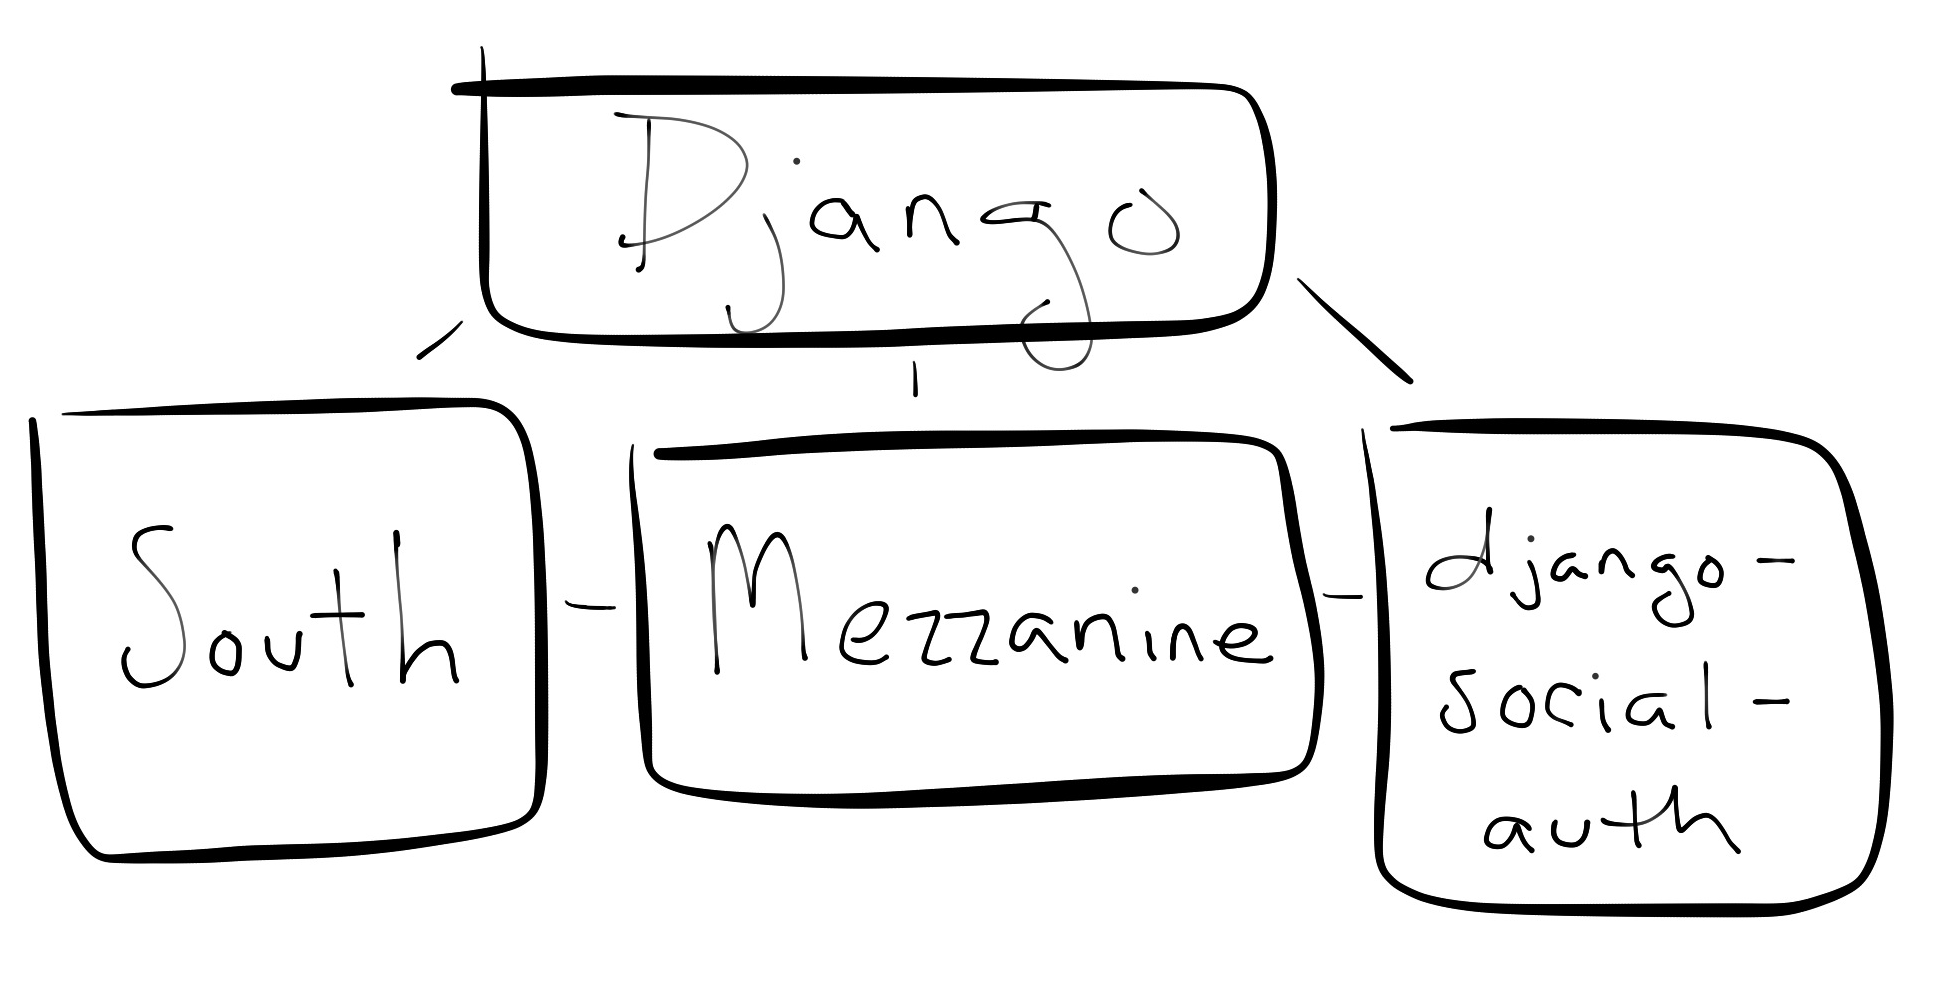 Django
South
Mezzanine
django-
social-
auth